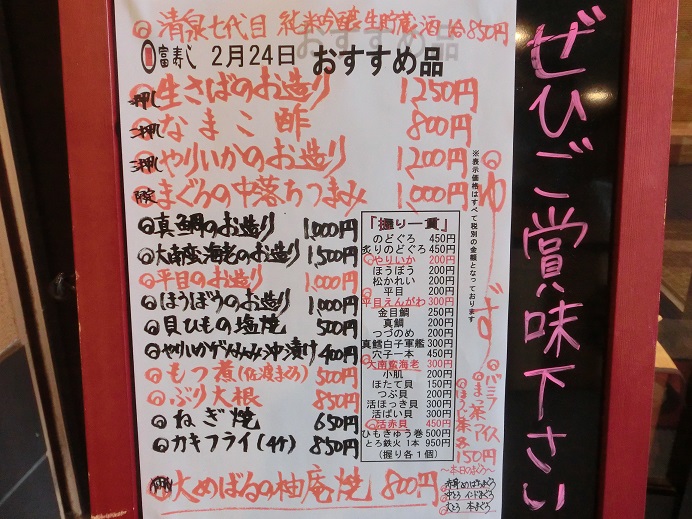 清泉七代目 純米吟醸生貯蔵酒 850円
富寿し 2月24日 おすすめ品
一押し 生さばのお造り 1,250円
二押し なまこ酢 800円
三押し やりいかのお造り 1,200円
限定 まぐろの中落ちつまみ 1,000円
真鯛のお造り 1,000円
大南蛮海老のお造り 1,500円
平目のお造り 1,000円
ほうぼうのお造り 1,000円
貝ひもの塩焼 500円
やりいかゲソ沖漬け 400円
もつ煮(佐渡まぐろ) 500円
ぶり大根 850円
ねぎ焼 650円
カキフライ(4ケ) 850円
大めばるの柚庵焼 800円
『握り一貫』
のどぐろ 450円
炙りのどぐろ 450円
やりいか 200円
ほうぼう 200円
松かれい 200円
平目 200円
平目えんがわ 300円
金目鯛 250円
真鯛 200円
つづのめ 200円
真鱈白子軍艦 300円
穴子一本 450円
大南蛮海老 300円
小肌 200円
ほたて貝 150円
つぶ貝 200円
活ほっき貝 300円
活ばい貝 300円
活赤貝 450円
ひもきゅう巻 500円
とろ鉄火 1本 950円
(握り各1個)
※表示価格はすべて税別の金額となっております
ゆず
バニラ
まっ茶
ほうじ茶
アイス
各150円
~本日のまぐろ~
赤身 めばちまぐろ
中とろ インドまぐろ
大とろ 本まぐろ
ぜひご賞味下さい